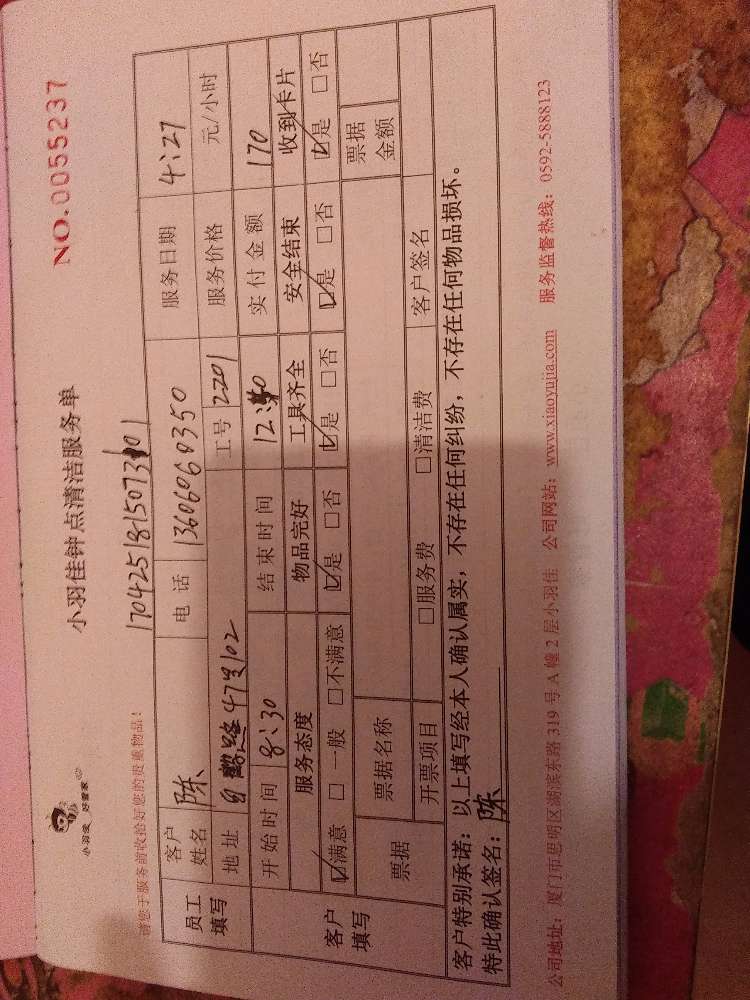 小羽佳 好管家
小羽佳钟点清洁服务单
NO.0055237
请您于服务前收拾好您的贵重物品！
员工填写 客户姓名 陈 电话 13606060350 服务日期 4:27
地址 路47号102 工号 2201 服务价格 元/小时
客户填写 开始时间 8:30 结束时间 12: 实付金额 170
服务态度 物品完好 工具齐全 安全结束 收到卡片
☑满意 □一般 □不满意 ☑是 □否 ☑是 □否 ☑是 □否 ☑是 □否
票据 票据名称 票据金额
开票项目 □服务费 □清洁费 客户签名
客户特别承诺：以上填写经本人确认属实，不存在任何纠纷，不存在任何物品损坏。
特此确认签名：陈
公司地址：厦门市思明区湖滨东路 319 号 A 幢 2 层小羽佳 公司网站：www.xiaoyujia.com 服务监督热线：0592-5888123